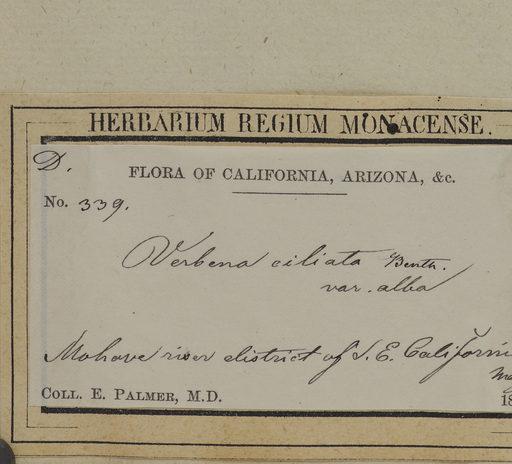 HERBARIUM REGIUM MONACENSE.
D.
FLORA OF CALIFORNIA, ARIZONA, &c.
No. 339.
Verbena ciliata Benth.
var. alba
Mohave river district of S. E. Californi
COLL. E. PALMER, M.D.
18